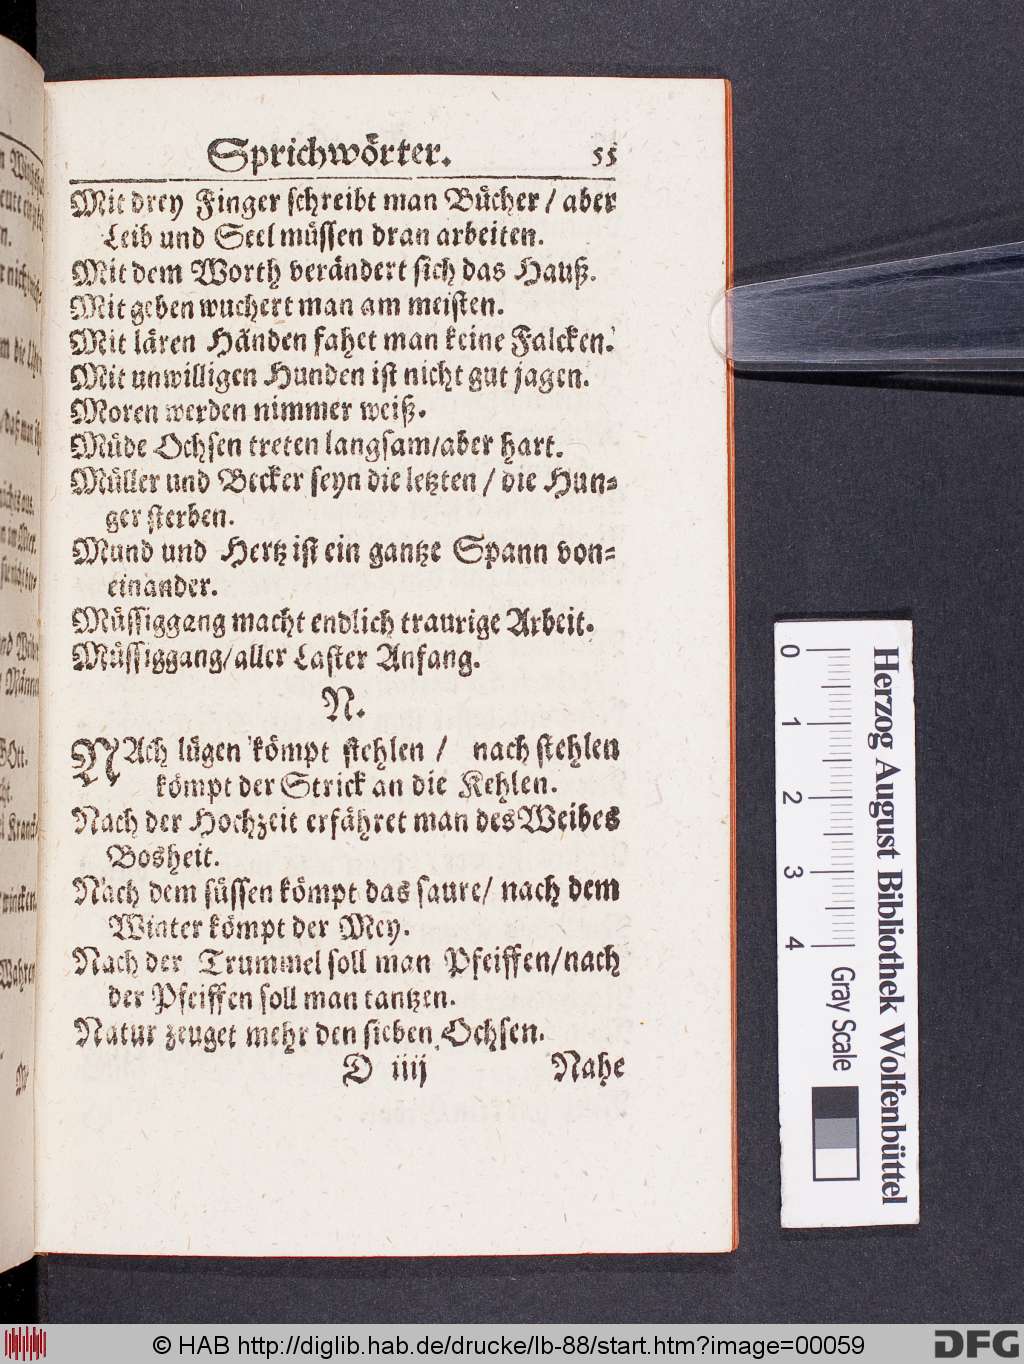 Sprichwörter. 55
Mit drey Finger schreibt man Bücher / aber
Leib und Seel müssen dran arbeiten.
Mit dem Worth verändert sich das Hauß.
Mit geben wuchert man am meisten.
Mit lären Händen fahet man keine Falcken.
Mit unwilligen Hunden ist nicht gut jagen.
Moren werden nimmer weiß.
Müde Ochsen treten langsam/aber hart.
Müller und Becker seyn die letzten / die Hun-
ger sterben.
Mund und Hertz ist ein gantze Spann von-
einander.
Müssiggang macht endlich traurige Arbeit.
Müssiggang/aller Laster Anfang.
N.
NAch lügen kömpt stehlen / nach stehlen
kömpt der Strick an die Kehlen.
Nach der Hochzeit erfähret man des Weibes
Bosheit.
Nach dem süssen kömpt das saure/ nach dem
Winter kömpt der Mey.
Nach der Trummel soll man Pfeiffen/nach
der Pfeiffen soll man tantzen.
Natur zeuget mehr den sieben Ochsen.
D iiij Nahe
0 1 2 3 4 Gray Scale
Herzog August Bibliothek Wolfenbüttel
© HAB http://diglib.hab.de/drucke/lb-88/start.htm?image=00059
DFG